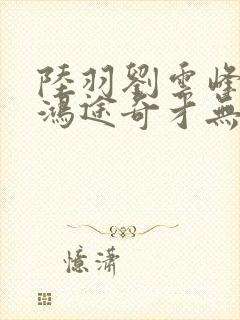 陸羽劉雲峰
鴻途奇才無
憶瀟